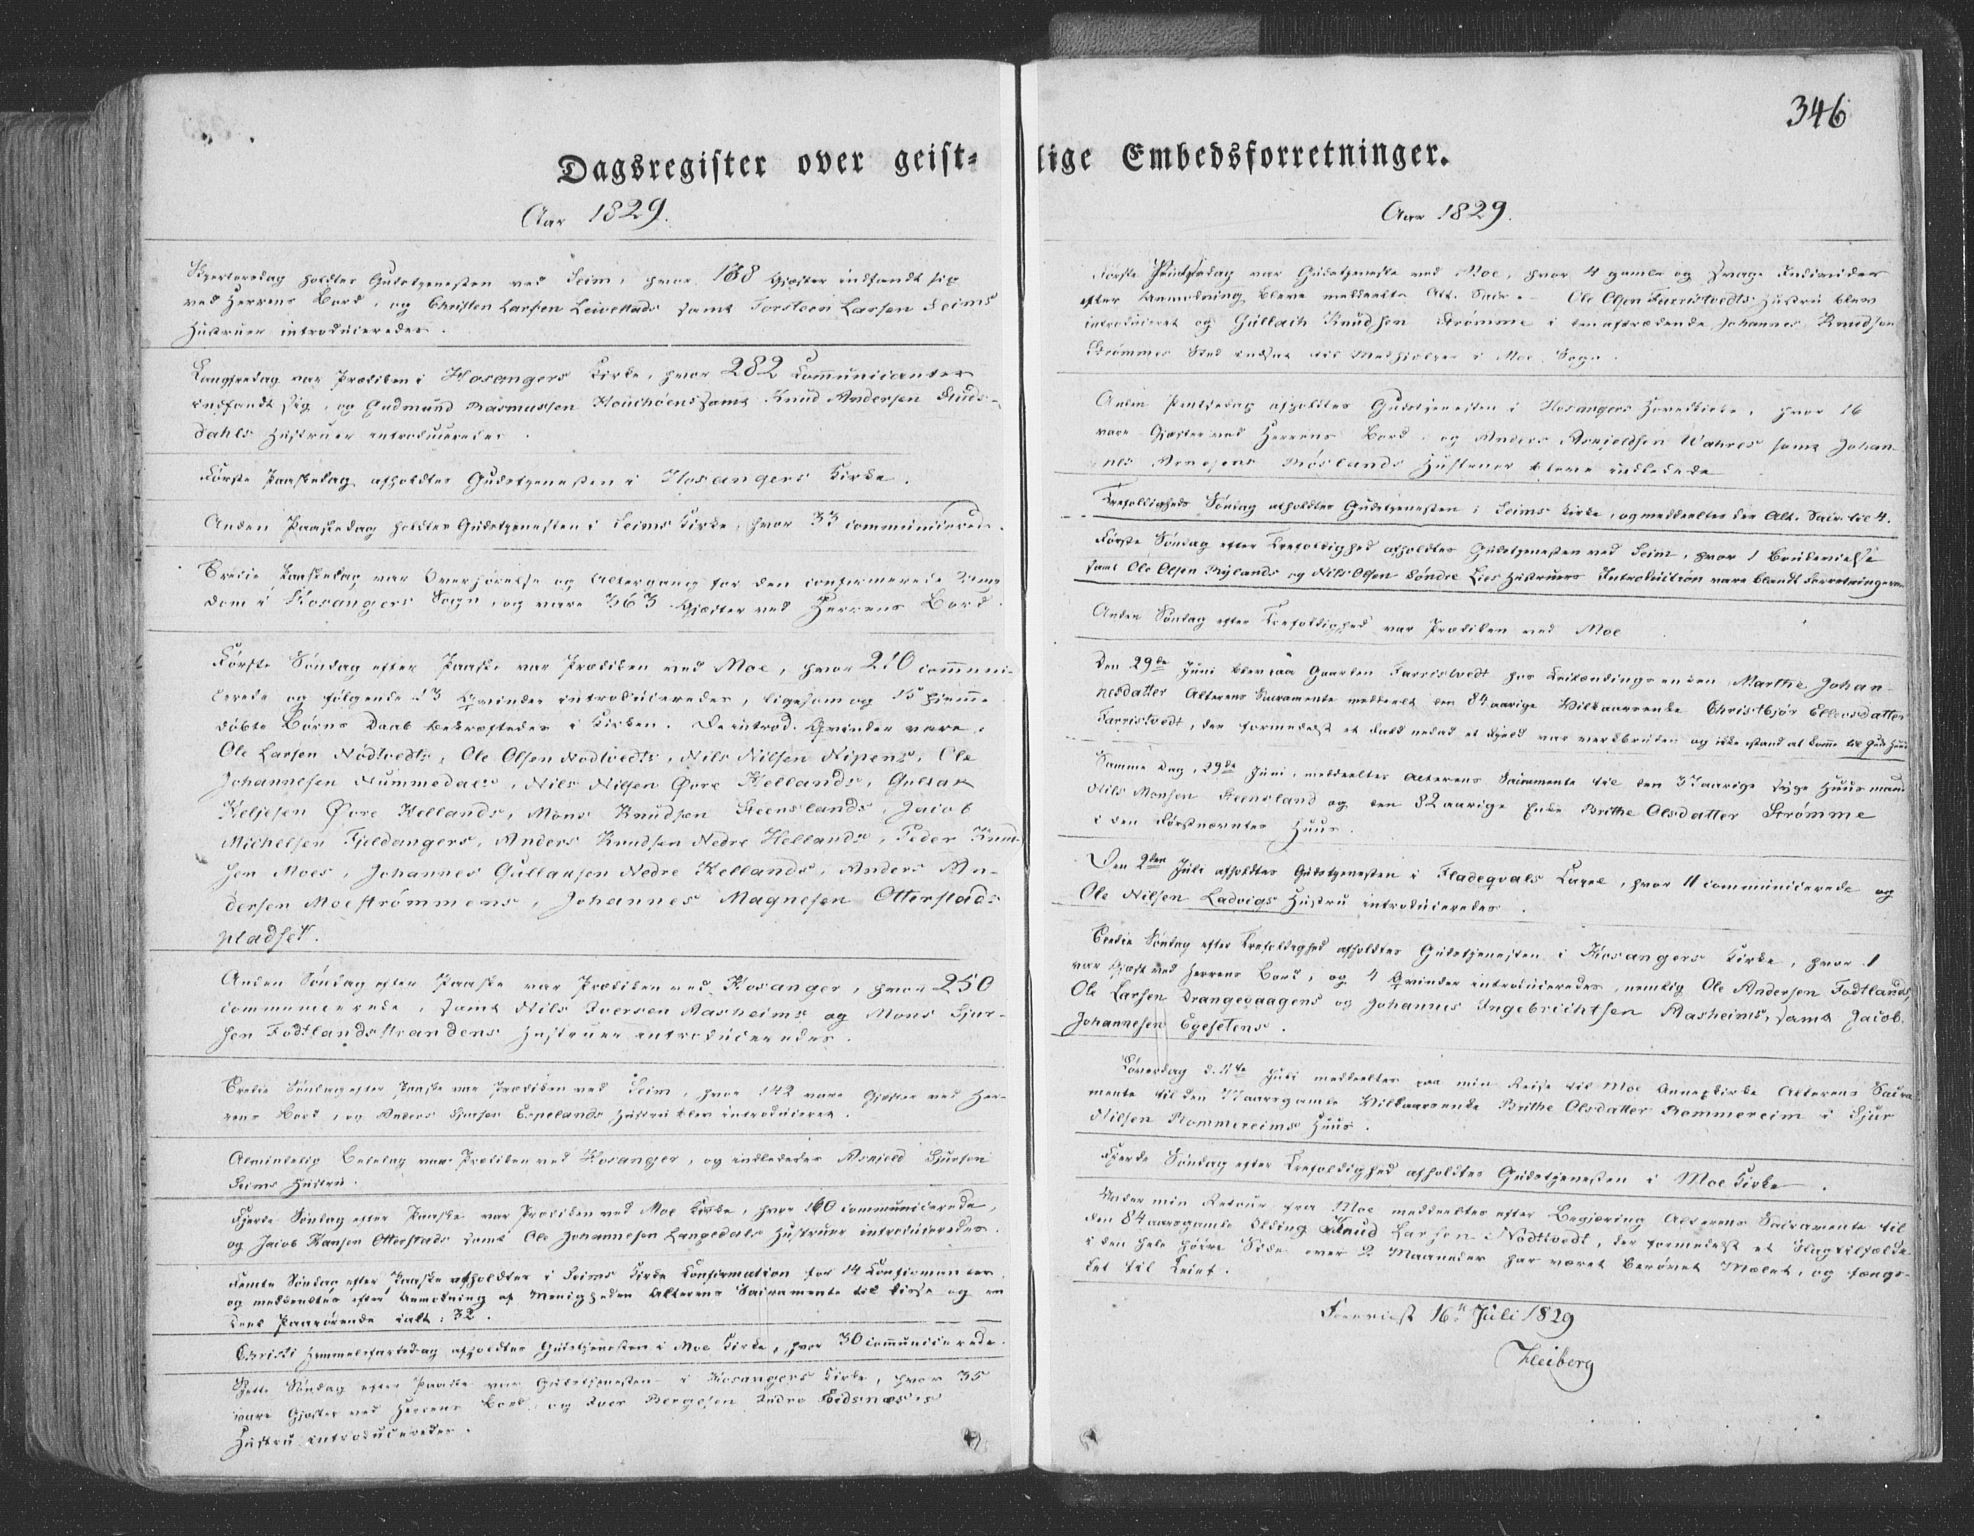 346
Dagsregister over geist-
Aar 1829.
Skjertorsdag holdtes Gudstjenesten ved Seim, hvor 188 Gjæster indfandt sig
ved Herrens Bord, og Christen Larsen samt Torsteen Larsen Seims
Hustruer introduceredes.
Langfredag var Prædiken i Hosangers Kirke, hvor 282 Communicanter
indfandt sig, og Gudmund Rasmussen samt Knud Andersen Studs-
dahls Hustruer introduceredes.
Første Paaskedag afholdtes Gudstjenesten i Hosangers Kirke.
Anden Paaskedag holdtes Gudstjenesten i Seims Kirke, hvor 33 communicerede.
Tredie Paaskedag var Overhørelse og Altergang for den confirmerede Ung-
dom i Hosangers Sogn, og vare 363 Gjæster ved Herrens Bord.
Første Søndag efter Paaske var Prædiken ved Moe, hvor 210 communi-
cerede og følgende 13 Qvinder introduceredes, ligesom og 15 hjemme-
døbte Børns Daab bekræftedes i Kirken. De introd. Qvinder vare:
Ole Larsen Nødtvedts, Ole Olsen Nødtvedts, Nils Nilsen Ripens, Ole
Johannesen Nummedals, Nils Nilsen Øvre Hellands, Gultak
Keljesen Øvre Hellands, Mons Knudsen Steenslands, Jacob
Michelsen Fjeldangers, Anders Knudsen Nedre Hellands, Peder Knud-
sen Moes, Johannes Gullaksen Nedre Hellands, Anders An-
dersen Moestrømmens, Johannes Magnesen Otterstads-
pladset.
Anden Søndag efter Paaske var Prædiken ved Hosanger, hvor 250
communicerede, samt Nils Iversen Aasheims og Mons Sjur-
sen Fodtlandsstrandens Hustruer introduceredes.
Tredie Søndag efter Paaske var Prædiken ved Seim, hvor 142 vare Gjæster ved Her-
rens Bord, og Anders Sjursen Espelands Hustru blev introduceret.
Almindelig Bededag var Prædiken ved Hosanger, og indlededes Arnfeld Sjursen
Seims Hustru.
Fjerde Søndag efter Paaske var Prædiken ved Moe Kirke, hvor 160 communicerede,
og Jacob Hansen Otterstads samt Ole Johannesen Langedals Hustruer introduceredes.
Femte Søndag efter Paaske afholdtes i Seims Kirke Confirmation for 14 Confirmanter
og meddeeltes efter Anmodning af Menigheden Alterens Sacramente til disse og en
Deel Paarørende ialt: 32.
Christi Himmelfartsdag afholdtes Gudstjenesten i Moe Kirke, hvor 30 communicerede.
Sjette Søndag efter Paaske var Gudstjenesten i Hosangers Kirke, hvor 35
vare Gjæster ved Herrens Bord, og Iver Bergesen Indre Eidsnæsses
Hustru introduceredes.
lige Embedsforretninger.
Aar 1829.
Første Pintsedag var Gudstjeneste ved Moe, hvor 4 gamle og svage Individer
efter Anmodning bleve meddeelte Alt. Sacr. - Ole Olsen Farristvedts Hustru blev
introduceret og Gullach Knudsen Strømme i den aftrædende Johannes Knudsen
Strømmes Sted indsat til Medhjelper i Moe Sogn.
Anden Pintsedag afholdtes Gudstjenesten i Hosangers Hovedkirke, hvor 16
vare Gjæster ved Herrens Bord, og Anders Arnfeldsen Wahres samt Johan-
nes Arnesens Røslands Hustruer bleve indledede
Trefoldigheds Søndag afholdtes Gudstjenesten i Seims Kirke, og meddeeltes der Alt. Sacr. til 4.
Første Søndag efter Trefoldighed afholdtes Gudstjenesten ved Seim, hvor 1 Brudevielse
samt Ole Olsen Rylands og Nils Olsen Søndre Lies Hustruers Introduction vare blandt Forretningerne
Anden Søndag efter Trefoldighed var Prædiken ved Moe
Den 29de Juni blev paa Gaarden Farristvedt hos Leilændingsenken Marthe Johan-
nesdatter Alterens Sacramente meddeelt den 84 aarige Vilkaarsenke Christbjør Ellevsdatter
Farristvedt, der formedelst et Fald nedad et Fjeld var værkbruden og ikke istand at komme til Guds Huus
Samme Dag, 29de Juni, meddeeltes Alterens Sacramente til den 37 aarige syge Huusmand
Nils Monsen Steensland og den 82 aarige Enke Brithe Olsdatter Strømme
i den Førstnævntes Huus.
Den 2den Juli afholdtes Gudstjenesten i Fladeqvals Capel, hvor 11 communicerede og
Ole Nilsen Ladvigs Hustru introduceredes.
Tredie Søndag efter Trefoldighed afholdtes Gudstjenesten i Hosangers Kirke, hvor 1
var Gjæst ved Herrens Bord, og 4 Qvinder introduceredes, nemlig Ole Andersen Fodtlands,
Ole Larsen Drangevaagens og Johannes Ingebrichtsen Aasheims, samt Jacob
Johannesen Egesetens.
Løverdag d. 11te Juli meddeeltes paa min Reise til Moe Annexkirke Alterens Sacra-
mente til den 77 aarsgamle Vilkaarsenke Brithe Olsdatter Rommereim i Sjur
Nilsen Rommereims Huus.
Fjerde Søndag efter Trefoldighed afholdtes Gudstjenesten i Moe Kirke.
Under min Retour fra Moe meddeeltes efter Begjæring Alterens Sacramente til
den 84 aarsgamle Olding Knud Larsen Nødtvedt, der formedelst et Slagtilfælde
i den hele høire Side over 2 Maaneder har været berøvet Mælet, og fængs-
let til Leiet.
16de Juli 1829
Heiberg